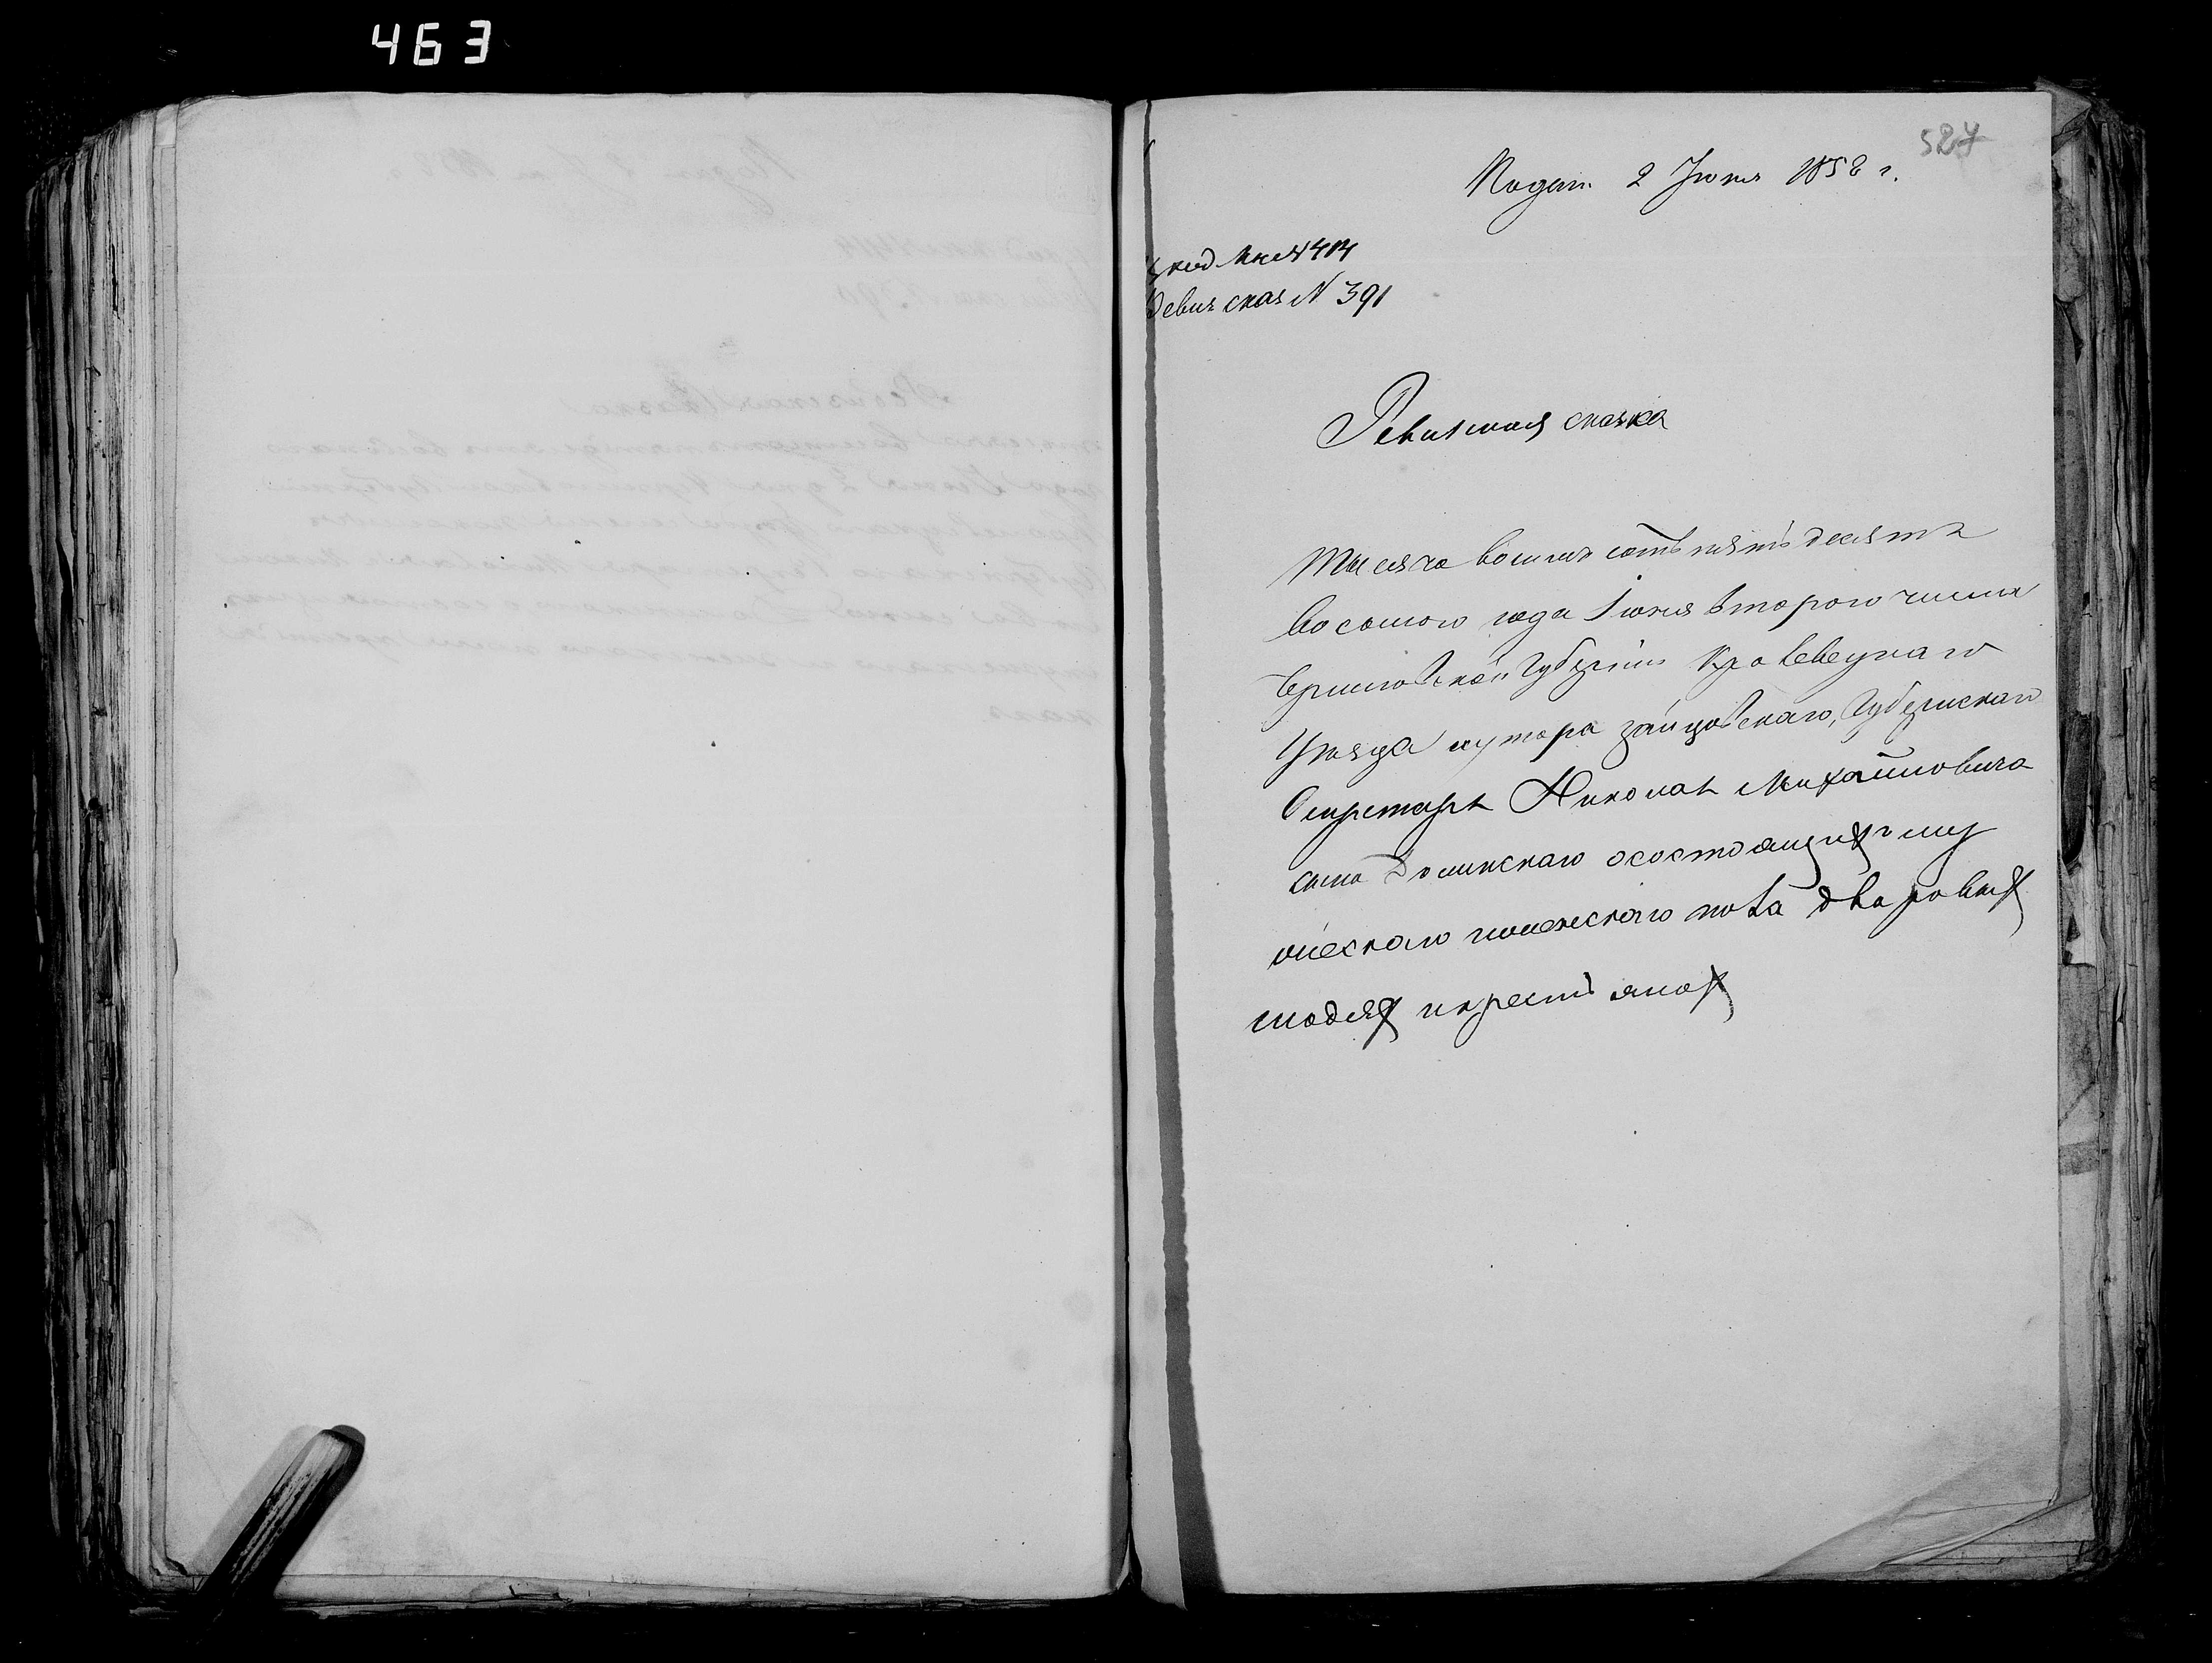 463
527
Подан. 2 Июня 1858 г.
Ревиз сказ N 391
Ревизская сказка
Тысяча восемь сотъ пятьдесятъ
восьмого года Июня второго числа
Черниговской Губернии Кролевецкаго
Уезда хутора Зайцовскаго, Губернскаго
Секретаря Николая Михайловича
сына Долинскаго о состоящихъ
мужескаго и женскаго пола дворовыхъ
людяхъ и крестьянахъ